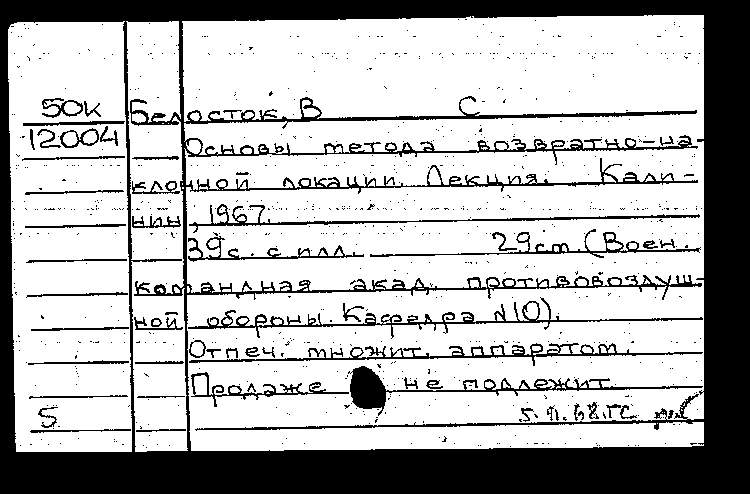 50к Белосток, В С
12004 Основы метода возвратно-на-
клонной локации. Лекция. Кали-
нин, 1967.
39с. с илл. 29см (Воен.
командная акад. противовоздуш-
ной обороны. Кафедра №10).
Отпеч. множит. аппаратом.
Продаже не подлежит
5